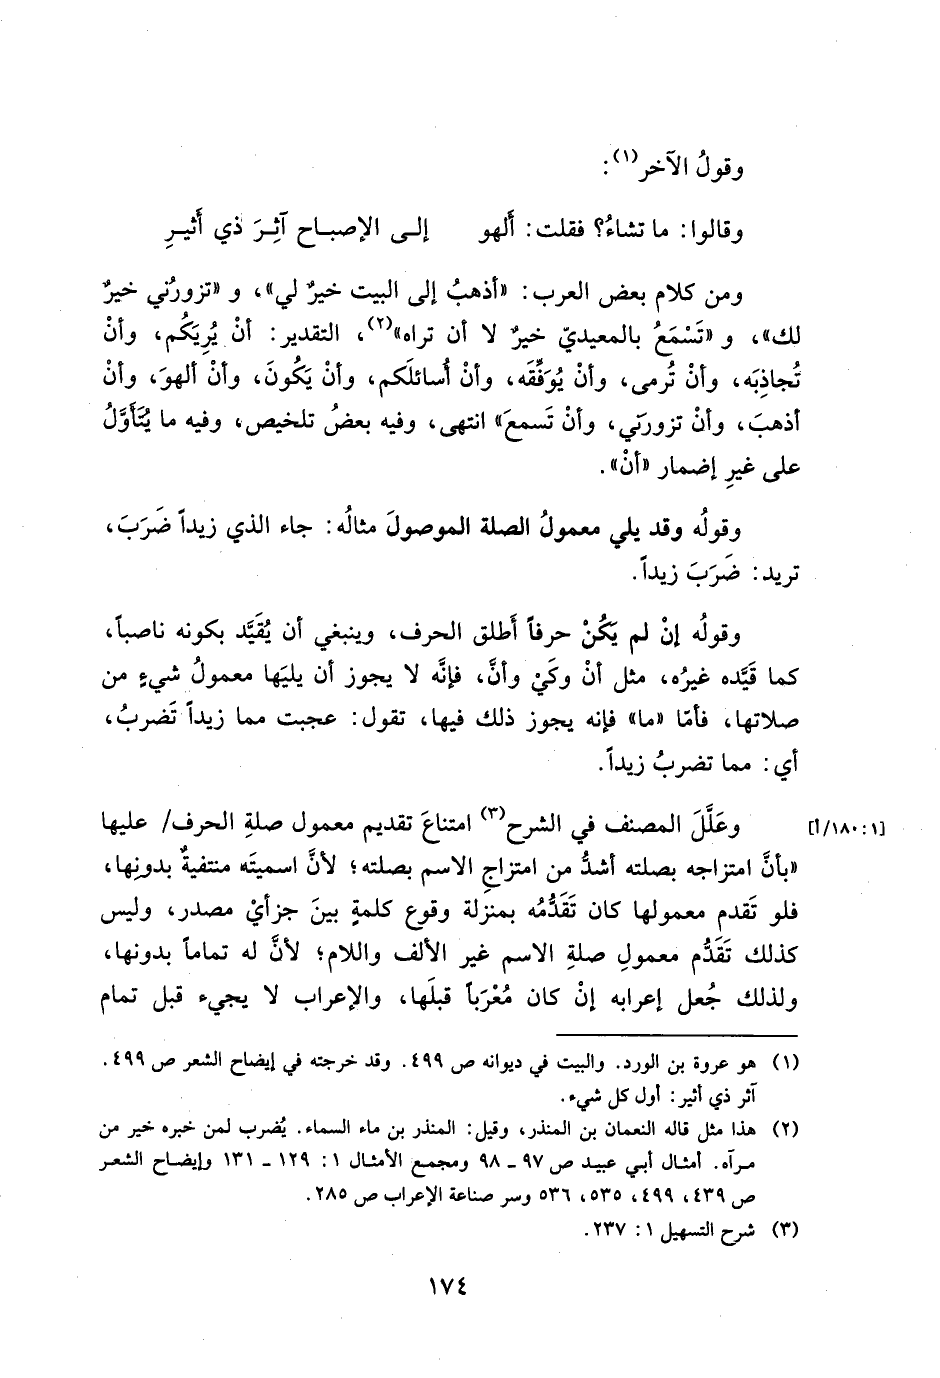 وقولُ الآخر(١):
وقالوا: ما تشاءُ؟ فقلت: أَلهو إلى الإصباح آثِرَ ذي أَثيرِ
ومن كلام بعض العرب: «أذهبُ إلى البيت خيرٌ لي»، و «تزورُني خيرٌ
لك»، و «تَسْمَعُ بالمعيديّ خيرٌ لا أن تراه»(٢)، التقدير: أنْ يُرِيَكُم، وأنْ
تُجاذِبَه، وأنْ تُرمى، وأنْ يُوَفِّقَه، وأنْ أُسائلَكم، وأنْ يَكُونَ، وأنْ ألهوَ، وأنْ
أذهبَ، وأنْ تزورَني، وأنْ تَسمعَ» انتهى، وفيه بعضُ تلخيص، وفيه ما يُتَأَوَّلُ
على غيرِ إضمار «أنْ».
وقولُه وقد يلي معمولُ الصلة الموصولَ مثالُه: جاء الذي زيداً ضَرَبَ،
تريد: ضَرَبَ زيداً.
وقولُه إنْ لم يَكُنْ حرفاً أَطلق الحرف، وينبغي أن يُقَيَّد بكونه ناصباً،
كما قَيَّده غيرُه، مثل أنْ وكَيْ وأنَّ، فإنَّه لا يجوز أن يليَها معمولُ شيءٍ من
صلاتها، فأمّا «ما» فإنه يجوز ذلك فيها، تقول: عجبت مما زيداً تَضربُ،
أي: مما تضربُ زيداً.
[١: ١٨٠/أ] وعَلَّلَ المصنف في الشرح(٣) امتناعَ تقديم معمول صلةِ الحرف/ عليها
«بأنَّ امتزاجه بصلته أشدُّ من امتزاجِ الاسم بصلته؛ لأنَّ اسميتَه منتفيةٌ بدونها،
فلو تَقدم معمولها كان تَقَدُّمُه بمنزلة وقوع كلمةٍ بينَ جزأيْ مصدر، وليس
كذلك تَقَدُّم معمولِ صلةِ الاسم غير الألف واللام؛ لأنَّ له تماماً بدونها،
ولذلك جُعل إعرابه إنْ كان مُعْرَباً قبلَها، والإعراب لا يجيء قبل تمام
(١) هو عروة بن الورد. والبيت في ديوانه ص ٤٩٩. وقد خرجته في إيضاح الشعر ص ٤٩٩.
آثر ذي أثير: أول كل شيء.
(٢) هذا مثل قاله النعمان بن المنذر، وقيل: المنذر بن ماء السماء. يُضرب لمن خبره خير من
مرآه. أمثال أبي عبيد ص ٩٧ ـ ٩٨ ومجمع الأمثال ١: ١٢٩ ـ ١٣١ وإيضاح الشعر
ص ٤٣٩، ٤٩٩، ٥٣٥، ٥٣٦ وسر صناعة الإعراب ص ٢٨٥.
(٣) شرح التسهيل ١: ٢٣٧.
١٧٤